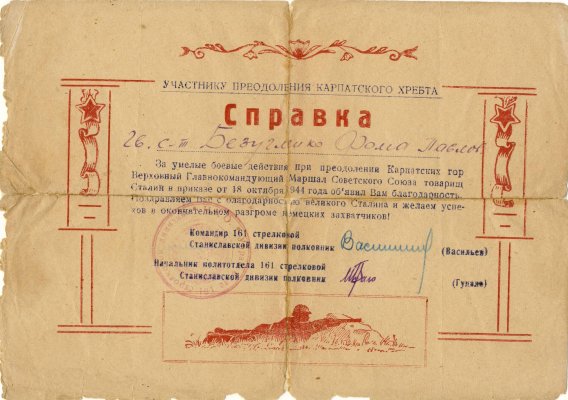 УЧАСТНИКУ ПРЕОДОЛЕНИЯ КАРПАТСКОГО ХРЕБТА
Справка
Гв. с-т Фома Павлов
За умелые боевые действия при преодолении Карпатских гор
Верховный Главнокомандующий Маршал Советского Союза товарищ
Сталин в приказе от 18 октября 1944 года об'явил Вам благодарность.
Поздравляем Вас с благодарностью великого Сталина и желаем успе-
хов в окончательном разгроме немецких захватчиков!
Командир 161 стрелковой
Станиславской дивизии полковник (Васильев)
Начальник политотдела 161 стрелковой
Станиславской дивизии полковник